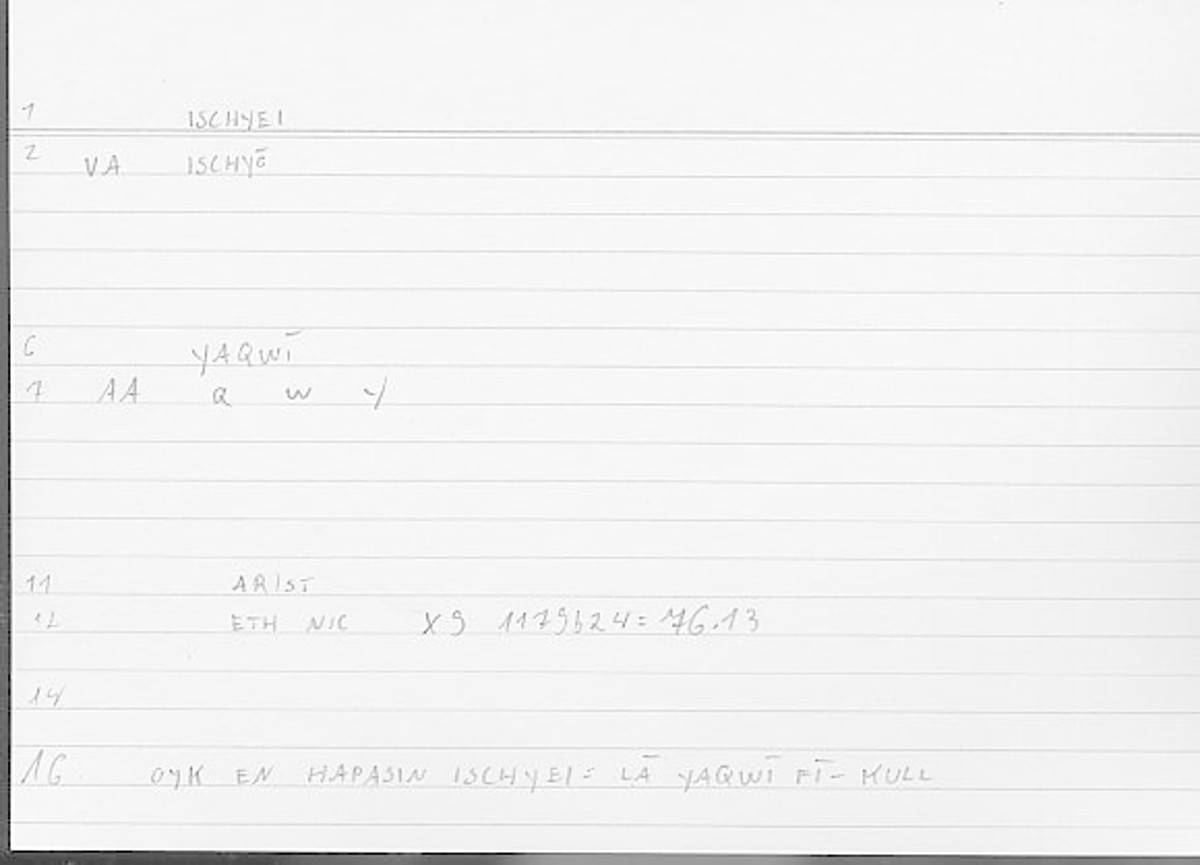 1 ISCHYEI
2 VA ISCHYŌ
6 YAQWĪ
7 AA Q W Y
11 ARIST
12 ETH NIC X 9 1179b24 = 76.13
14
16 OYK EN HAPASIN ISCHYEI = LĀ YAQWĪ FĪ - KULL